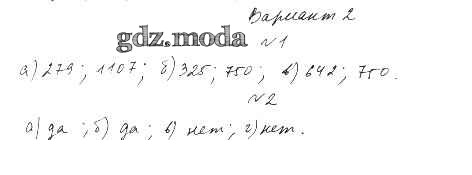 Вариант 2
gdz.moda
№1
а) 279; 1107; б) 325; 750; в) 642; 750.
№2
а) да; б) да; в) нет; г) нет.